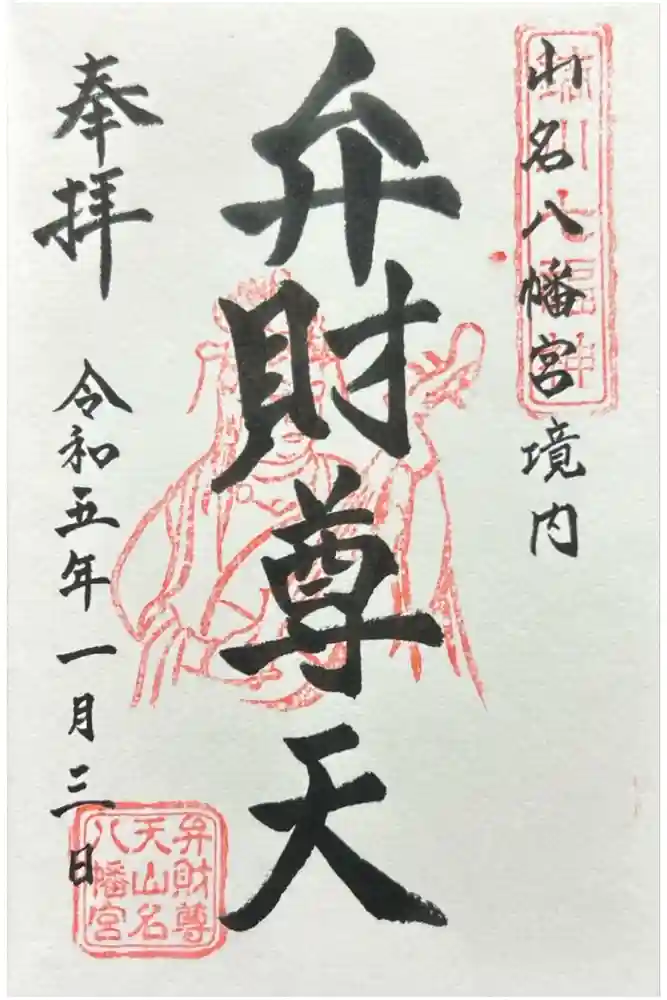 山名八幡宮境内
七福神
弁財尊天
奉拝
令和五年一月三日
弁財尊
天山名
八幡宮